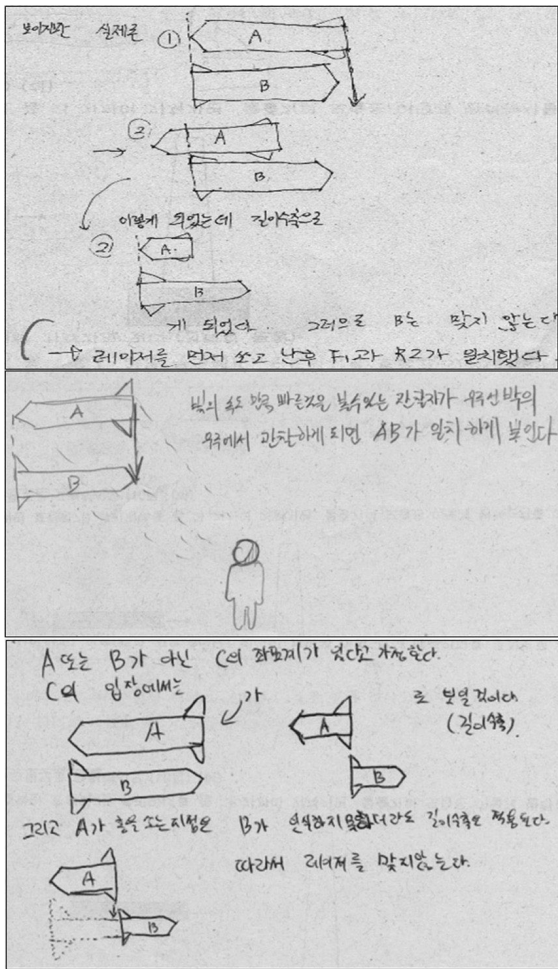 보이지만 실제론
①
A
B
③
A
B
이렇게 되었는데 길이수축으로
②
A
B
게 되었다. 그러므로 B는 맞지 않는다
레이저를 먼저 쏘고 난후 과 가 일치했다.
A
B
빛의 속도 만큼 빠른것을 볼수있는 관찰자가 우주선 밖의
우주에서 관찰하게 되면 AB가 일치하게 보인다
A 또는 B가 아닌 C의 좌표계가 있다고 가정한다.
C의 입장에서는
가
로 보일것이다
(길이수축)
A
B
A
B
그리고 A가 총을 쏘는지점은 B가 길이수축은 적용된다.
따라서 레이저를 맞지않는다.
A
B